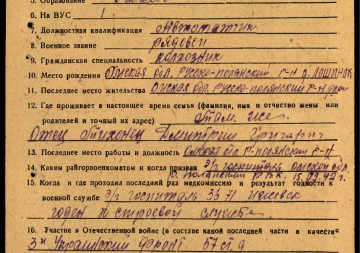 5. Образование
6. На ВУС 1
7. Должностная квалификация Автоматчик
8. Военное звание рядовой
9. Гражданская специальность колхозник
10. Место рождения Омская обл. Русско-полянский р-н
11. Последнее место жительства Омская обл. русско-полянский р-н
12. Где проживает в настоящее время семья (фамилия, имя и отчество жены или
родителей и точный их адрес) Там же
Отец Тихонец Дмитрий
13. Последнее место работы и должность Омская обл Р-полянский Р-н
14. Каким райгорвоенкоматом и когда призван Э/г госпиталь омской обл.
Р. Полянский РВК. 15.09.42 г.
15. Когда и где проходил последний раз медкомиссию и результат годности к
военной службе Э/г госпиталь 3671
годен к строевой службе
16. Участие в Отечественной войне (в составе какой последней части и в качестве
3й Украинский фронт. 57 сд